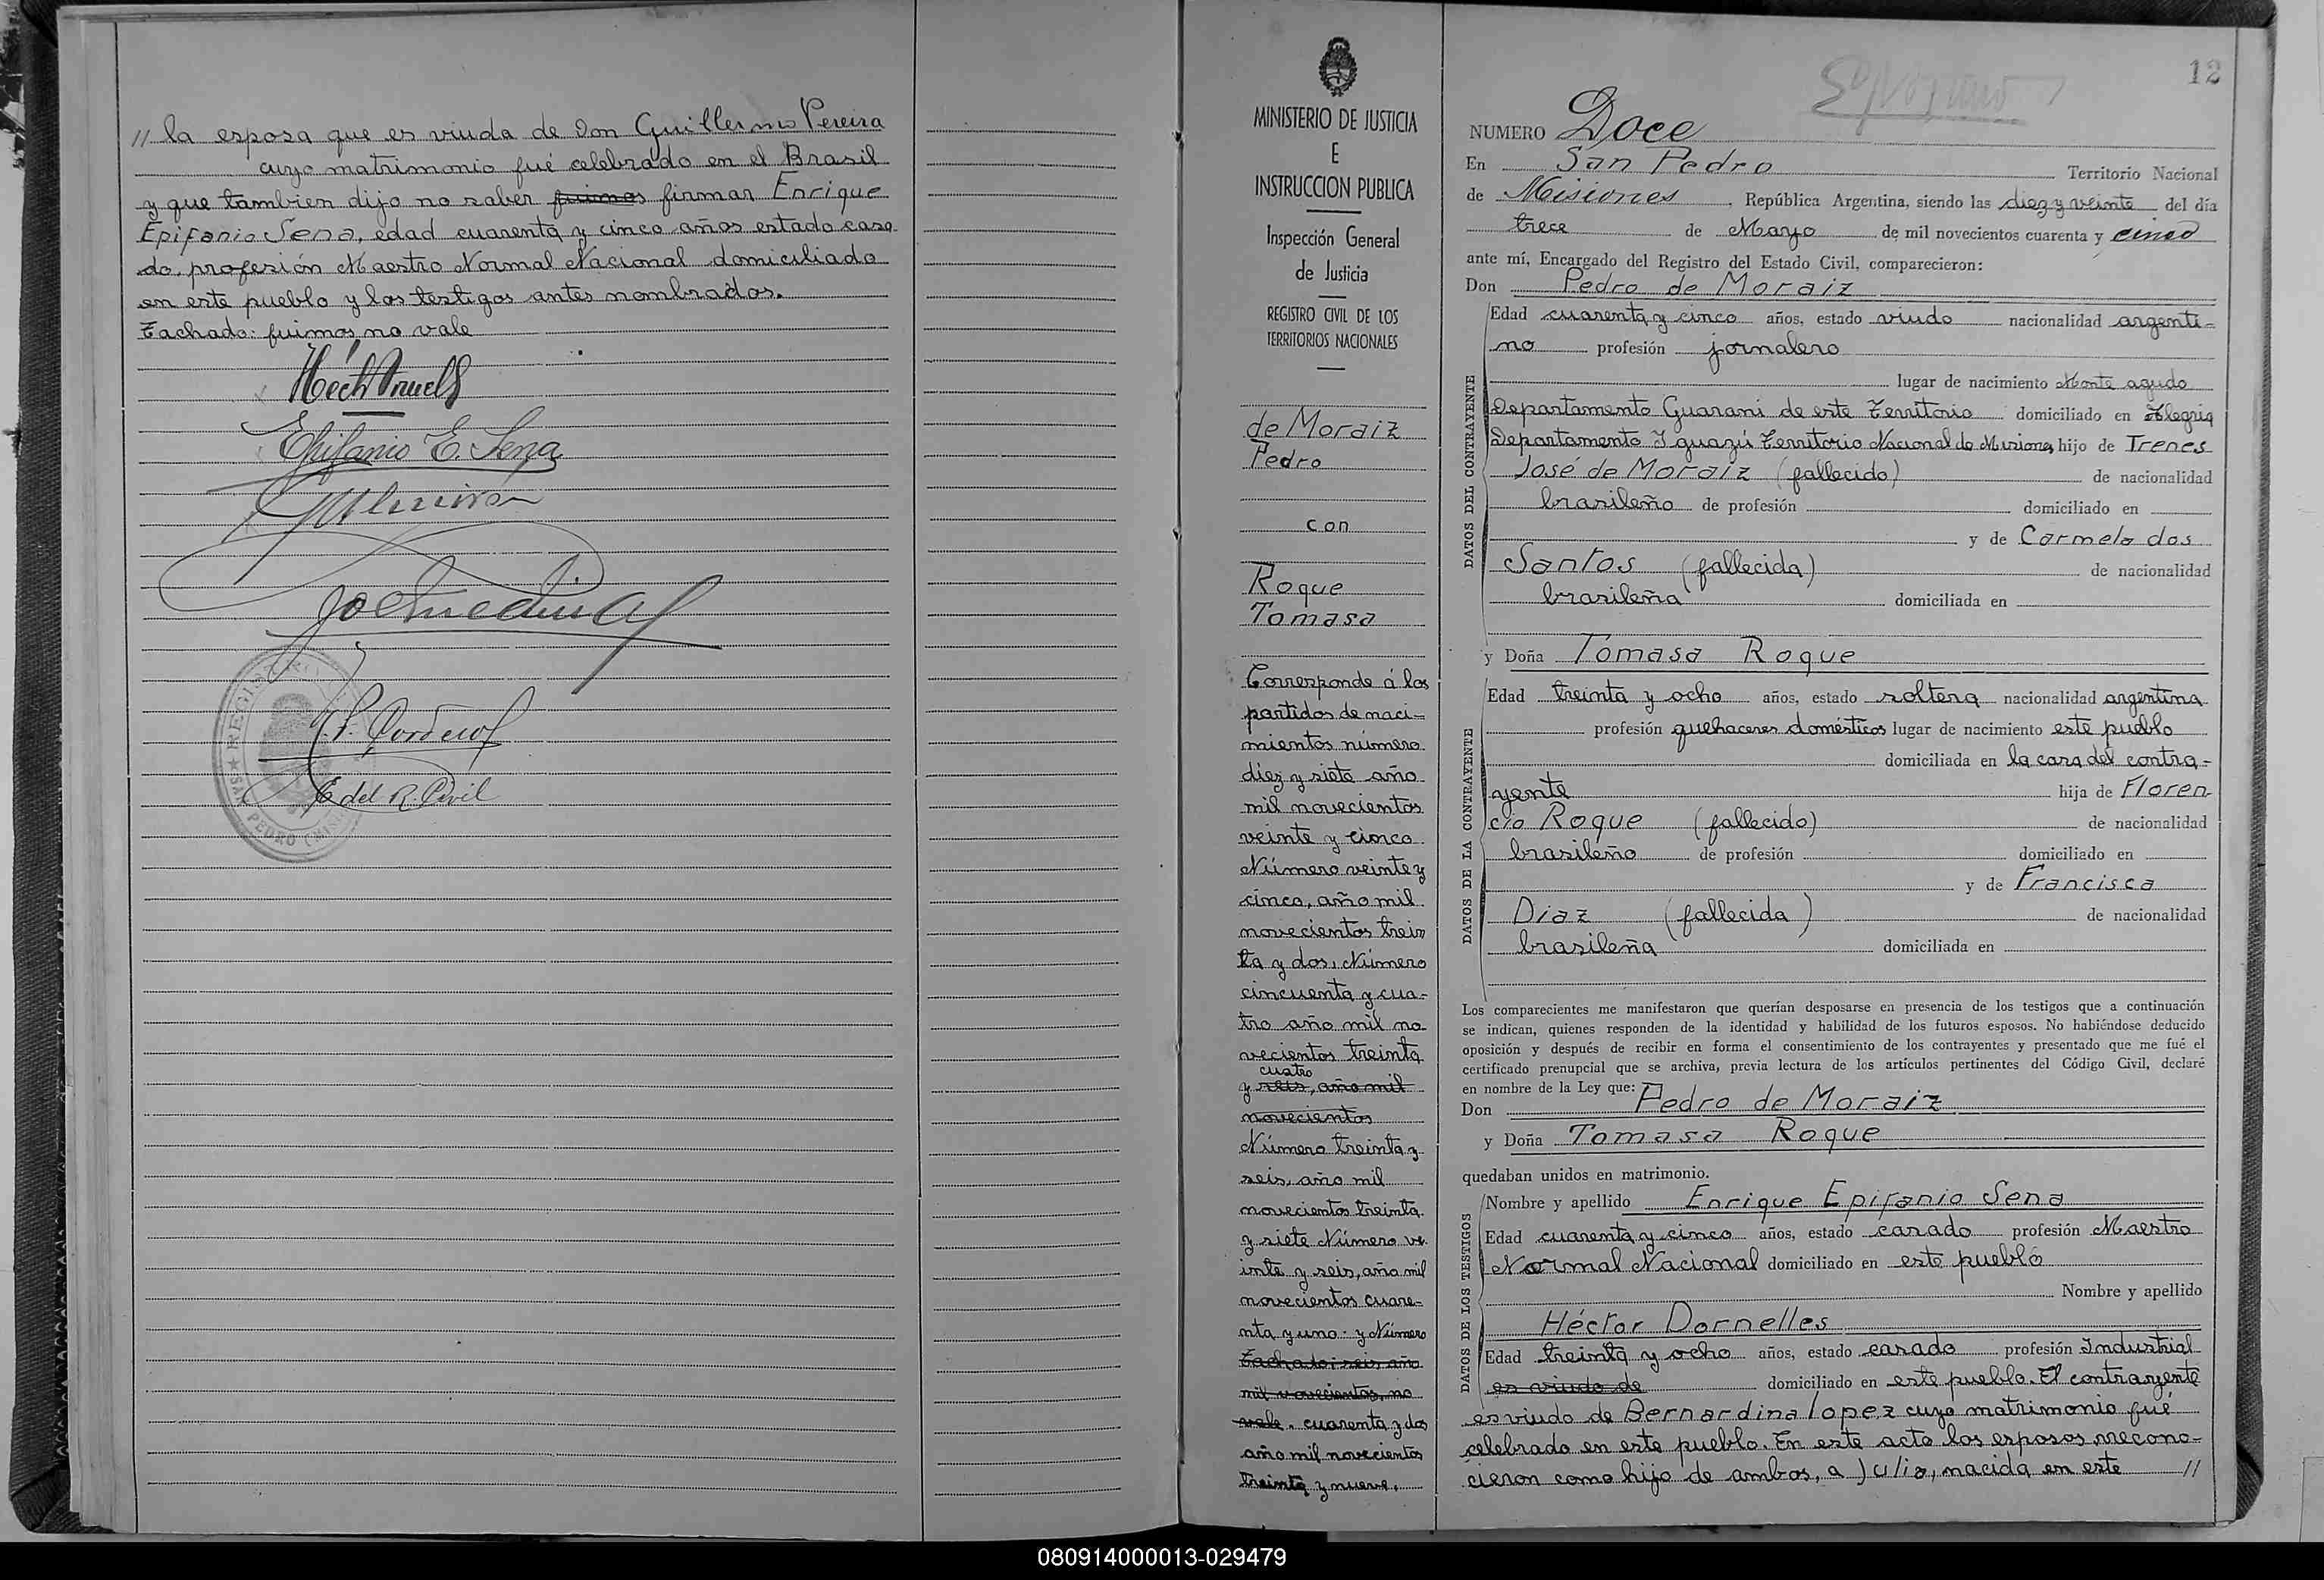 // la esposa que es viuda de Don Guillermo Pereira
cuyo matrimonio fué celebrado en el Brasil
y que tambien dijo no saber fuimos firmar Enrique
Epifanio Sena, edad cuarenta y cinco años estado casa
do, profesión Maestro Normal Nacional domiciliado
en este pueblo y los testigos antes nombrados.
Tachado: fuimos, no vale
Epifanio E. Sena
E del R. Civil
REGISTRO
SAN PEDRO (MISIONES)
MINISTERIO DE JUSTICIA
E
INSTRUCCION PUBLICA
Inspección General
de Justicia
REGISTRO CIVIL DE LOS
TERRITORIOS NACIONALES
de Moraiz
Pedro
con
Roque
Tomasa
Corresponde á los
partidos de naci-
mientos número
diez y siete año
mil novecientos
veinte y cinco
Número veinte y
cinco, año mil
novecientos trein
ta y dos, Número
cincuenta y cua-
tro año mil no
vecientos treinta
cuatro
y seis, año mil
novecientos
Número treinta y
seis, año mil
novecientos treinta
y siete Número ve
inte y seis, año mil
novecientos cuare-
nta y uno y Número
Tachado: seis año
mil novecientos, no
vale. cuarenta y dos
año mil novecientos
treinta y nueve.
12
NUMERO Doce
En San Pedro Territorio Nacional
de Misiones, República Argentina, siendo las diez y veinte del día
trece de Mayo de mil novecientos cuarenta y cinco
ante mí, Encargado del Registro del Estado Civil, comparecieron:
Don Pedro de Moraiz
DATOS DEL CONTRAYENTE
Edad cuarenta y cinco años, estado viudo nacionalidad argenti-
no profesión jornalero
lugar de nacimiento Monte agudo
Departamento Guarani de este Territorio domiciliado en Alegria
Departamento Iguazú Territorio Nacional de Misiones hijo de Trenes
José de Moraiz (fallecido) de nacionalidad
brasileño de profesión domiciliado en
y de Carmela dos
Santos (fallecida) de nacionalidad
brasileña domiciliada en
y Doña Tomasa Roque
DATOS DE LA CONTRAYENTE
Edad treinta y ocho años, estado soltera nacionalidad argentina
profesión quehaceres domésticos lugar de nacimiento este pueblo
domiciliada en la casa del contra-
yente hija de Floren
cio Roque (fallecido) de nacionalidad
brasileño de profesión domiciliado en
y de Francisca
Diaz (fallecida) de nacionalidad
brasileña domiciliada en
Los comparecientes me manifestaron que querían desposarse en presencia de los testigos que a continuación
se indican, quienes responden de la identidad y habilidad de los futuros esposos. No habiéndose deducido
oposición y después de recibir en forma el consentimiento de los contrayentes y presentado que me fué el
certificado prenupcial que se archiva, previa lectura de los artículos pertinentes del Código Civil, declaré
en nombre de la Ley que:
Don Pedro de Moraiz
y Doña Tomasa Roque
quedaban unidos en matrimonio.
DATOS DE LOS TESTIGOS
Nombre y apellido Enrique Epifanio Sena
Edad cuarenta y cinco años, estado casado profesión Maestro
Normal Nacional domiciliado en este pueblo
Nombre y apellido
Héctor Dornelles
Edad treinta y ocho años, estado casado profesión Industrial
es viudo de domiciliado en este pueblo. El contrayente
es viudo de Bernardina lopez cuyo matrimonio fué
celebrado en este pueblo. En este acto los esposos recono-
cieron como hijo de ambos, a Julia, nacida en este //
080914000013-029479